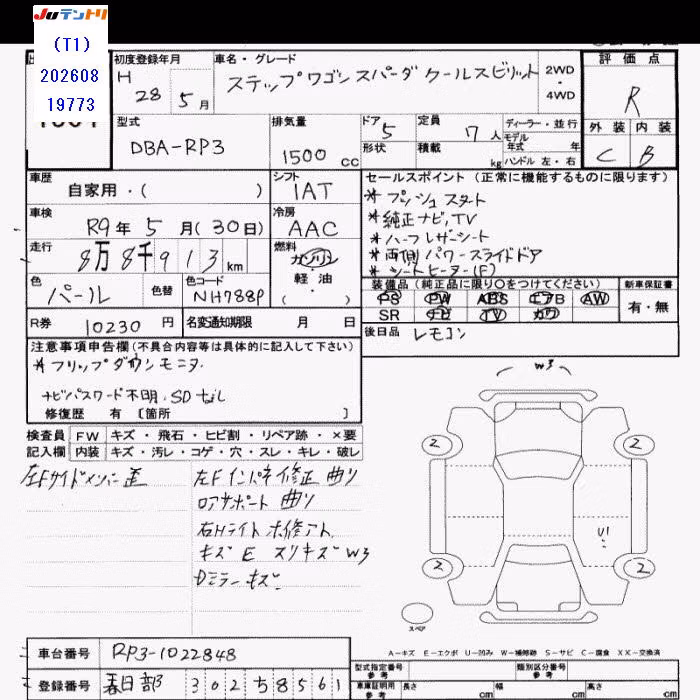 Juテントリ
(T1)
202608
19773
初度登録年月
H
28 5月
車名・グレード
ステップワゴンスパーダクールスピリット
2WD
4WD
評価点
R
外装 内装
C B
型式
DBA-RP3
排気量
1500 cc
ドア 5
形状
定員 7人
積載 kg
ディーラー・並行
モデル
年式 年
ハンドル 左・右
車歴
自家用・( )
シフト
IAT
車検
R9年5月(30日)
冷房
AAC
走行
8万8千913km
燃料
ガソリン
軽油
( )
色
パール
色替
色コード
NH788P
R券 10230円
名変通知期限 月 日
セールスポイント(正常に機能するものに限ります)
*プッシュスタート
*純正ナビ,TV
*ハーフレザーシート
*両側パワースライドドア
*シートヒーター(F)
装備品(純正品に限り○をつけてください)
新車保証書
PS PW ABS エアB AW
SR ナビ TV カワ
有・無
後日品 レモコン
注意事項申告欄(不具合内容等は具体的に記入して下さい)
*フリップダウンモニタ
ナビパスワード不明.SDなし
修復歴 有〔箇所 〕
検査員 FW キズ・飛石・ヒビ割・リペア跡・×要
記入欄 内装 キズ・汚レ・コゲ・穴・スレ・キレ・破レ
左Fサイドメンバー歪
左Fインパネ修正 曲り
ロアサポート 曲り
右Hライト ホ修アト
キズ E スリキズ W3
Dミラーキズ
W3
2 2
U1
2 2
スペア
A-キズ E-エクボ U-凹み W-補修跡 S-サビ C-腐食 XX-交換済
車台番号 RP3-1022848
登録番号 春日部 302ち8561
型式指定番号
参考
類別区分番号
参考
車庫証明用
参考
長さ cm 幅 cm 高さ cm